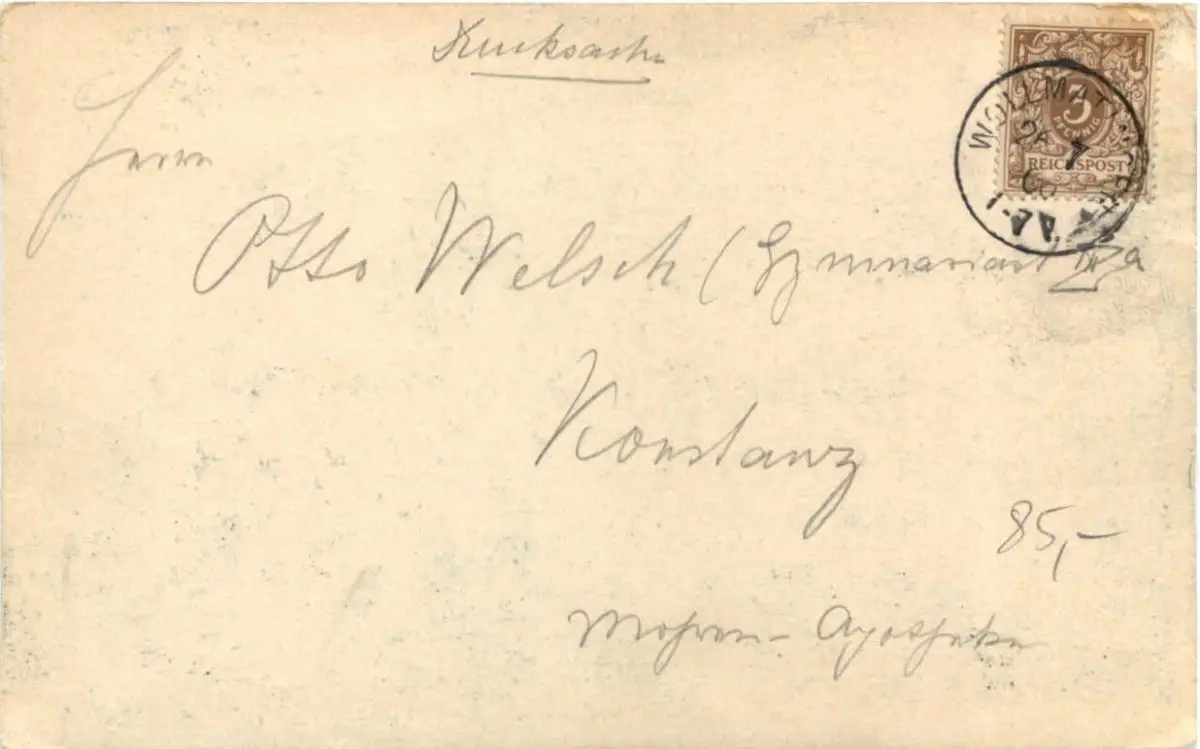 Drucksache
Herrn
Otto Welsch (Gymnasiast IIIa
Konstanz
85,-
Mohren-Apotheke
3
PFENNIG
REICHSPOST
WOLLMATINGEN
7